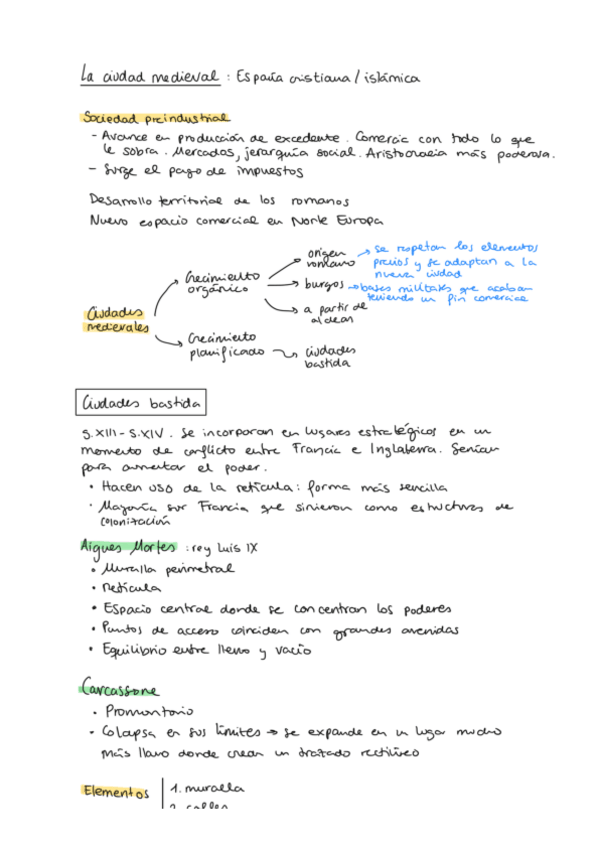 La ciudad medieval : España cristiana / islámica
Sociedad preindustrial
- Avance en producción de excedente. Comercia con todo lo que
le sobra. Mercados, jerarquía social. Aristocracia más poderosa.
- Surge el pago de impuestos
Desarrollo territorial de los romanos
Nuevo espacio comercial en Norte Europa
Ciudades
medievales
Crecimiento
orgánico
origen
romano → se respetan los elementos
previos y se adaptan a la
nueva ciudad
burgos → bases militares que acaban
teniendo un fin comercial
a partir de
aldeas
Crecimiento
planificado → ciudades
bastida
Ciudades bastida
S.XIII - S.XIV. Se incorporan en lugares estratégicos en un
momento de conflicto entre Francia e Inglaterra. Servían
para aumentar el poder.
• Hacen uso de la retícula: forma más sencilla
• Mayoría sur Francia que sirvieron como estructuras de
colonización
Aigues Mortes : rey Luis IX
• Muralla perimetral
• Retícula
• Espacio central donde se concentran los poderes
• Puntos de acceso coinciden con grandes avenidas
• Equilibrio entre lleno y vacío
Carcassone
• Promontorio
• Colapsa en sus límites → se expande en un lugar mucho
más llano donde crean un trazado rectilíneo
Elementos
1. muralla
2. calles